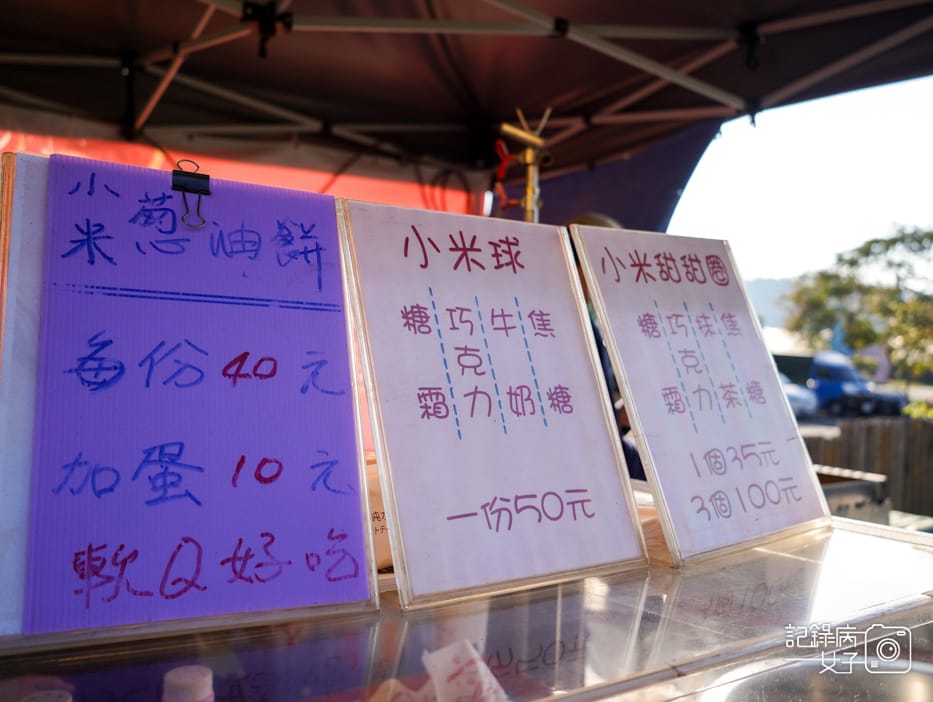 小米蔥油餅
每份40元
加蛋10元
軟Q好吃
小米球
糖霜 巧克力 牛奶 焦糖
一份50元
小米甜甜圈
糖霜 巧克力 抹茶 焦糖
1個35元
3個100元
記錄病女子